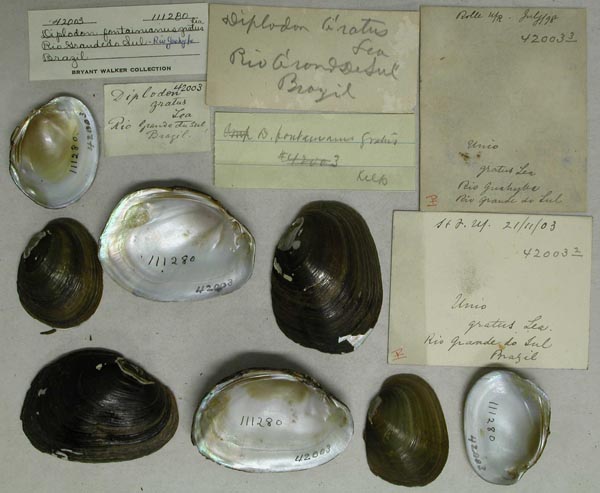 42003 111280
Diplodon fontainianus gratus Lea
Rio Grande do Sul - Rio Guahyba
Brazil
BRYANT WALKER COLLECTION
42003
Diplodon
gratus
Lea
Rio Grande du Sul
Brazil.
Diplodon Gratus
Lea
Rio Grond De Sul
Brazil
Comp D. fontainianus gratus
#42003
Rolle 4/2 - July/98
42003 3
Unio
gratus Lea
Rio Guahyba
Rio Grande do Sul
H. F. 21/11/03
42003 2
Unio
gratus Lea.
Rio Grande do Sul
Brazil
111280
42003
111280
42003
111280
42003
111280
42003